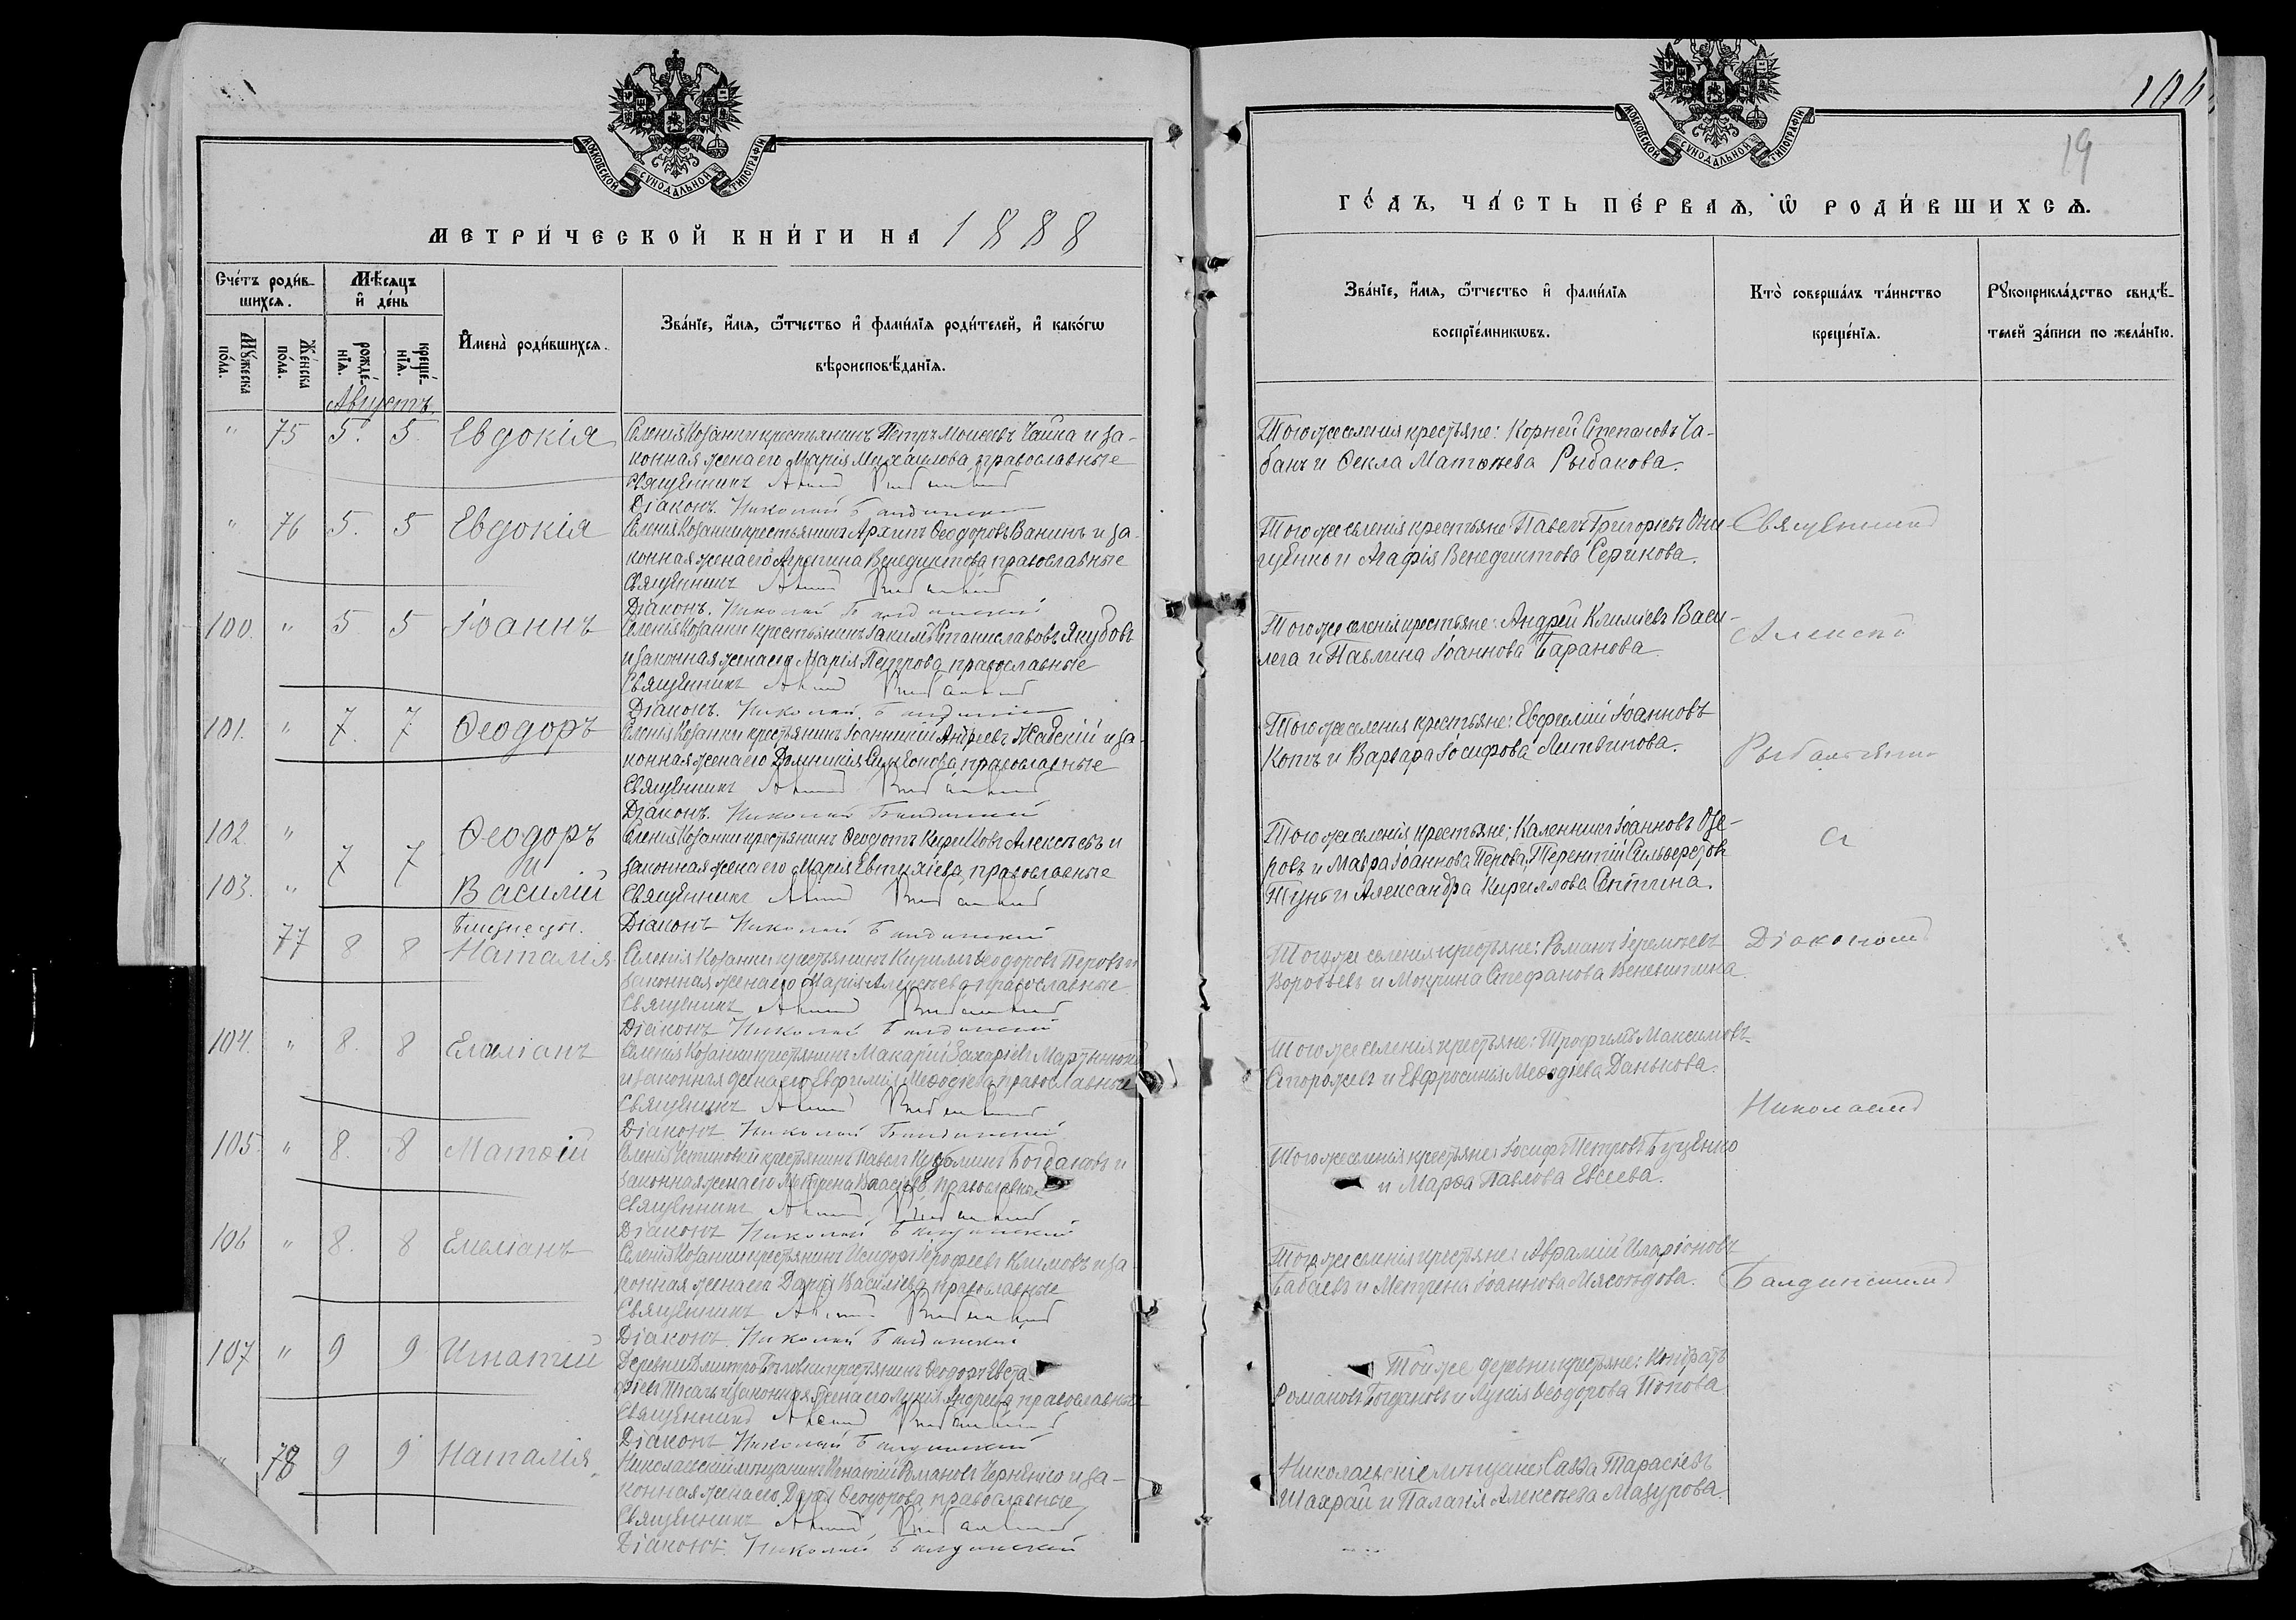 МОСКОВСКОЙ СУНОДАЛЬНОЙ ТИПОГРАФІИ
МЕТРИ́ЧЕСКОЙ КНИ́ГИ НА 1888
Сче́тъ роди́в-
шихся.
Мѣ́сяцъ
и де́нь
Мꙋ́жеска
по́ла.
Же́нска
по́ла.
рожде́-
нїѧ.
креще́-
нїѧ.
Имена̀ роди́вшихся.
Зва́нїе, и́мя, ѻ҆́тчество и фами́лїя роди́телей, и како́гѡ
вѣроисповѣ́данїя.
Августъ.
" 75 5. 5 Евдокія Селенія Козанки крестьянинъ Петръ Моисеевъ Чайка и за-
конная жена его Марія Михаилова, православные
Священникъ
Діаконъ. Николай Балдинскій
" 76 5. 5 Евдокія Селенія Козанки крестьянинъ Архипъ Ѳеодоровъ Ванинъ и за-
конная жена его Агрипина Венедиктова православные
Священникъ
Діаконъ. Николай Балдинскій
100. " 5 5 Іоаннъ Селенія Козанки крестьянинъ Іакимъ Станиславовъ Якубовъ
и законная жена его Марія Петрова, православные
Священникъ
Діаконъ. Николай Балдинскій
101. " 7. 7 Ѳеодоръ Селенія Козанки крестьянинъ Іоанникій Андреевъ Жабскій и за-
конная жена его Домникія Симеонова, православные
Священникъ
Діаконъ. Николай Балдинскій
102. " 7 7 Ѳеодоръ Селенія Козанки крестьянинъ Ѳеодотъ Кириловъ Алексѣевъ и
и законная жена его Марія Евтихіева, православные
103. " Василій Священникъ
близнецы. Діаконъ Николай Балдинскій
77 8 8 Наталія Селенія Козанки крестьянинъ Кирилъ Ѳеодоровъ Перовъ и
законная жена его Марія Алексѣева, православные
Священникъ
Діаконъ Николай Балдинскій
104. " 8. 8 Емеліанъ Селенія Козанки крестьянинъ Макарій Захаріевъ Мартынюкъ
и законная жена его Евфимія Меѳодіева, православные
Священникъ
Діаконъ Николай Балдинскій
105 " 8. 8 Матѳій Селенія крестьянинъ Павелъ Кузьминъ Богдановъ и
законная жена его Матрена Власіева, православные
Священникъ
Діаконъ Николай Балдинскій
106 " 8. 8 Емеліанъ Селенія Козанки крестьянинъ Исидоръ Іерофеевъ Климовъ и за-
конная жена его Дарія Василіева, православные
Священникъ
Діаконъ Николай Балдинскій
107 " 9 9 Игнатій Деревни крестьянинъ Ѳеодоръ Евста-
фіевъ Ткачъ и законная жена его Лукія Андреева, православные
Священникъ
Діаконъ Николай Балдинскій
" 78 9 9 Наталія Николаевскій мѣщанинъ Игнатій Романовъ Черненко и за-
конная жена его Дарія Ѳеодорова, православные
Священникъ
Діаконъ. Николай Балдинскій
МОСКОВСКОЙ СУНОДАЛЬНОЙ ТИПОГРАФІИ
19
ГО́ДЪ, ЧА́СТЬ ПЕ́РВАЯ, Ѡ РОДИ́ВШИХСЯ.
Зва́нїе, и́мя, ѻ҆́тчество и фами́лїя
воспрїе́мникѡвъ.
Кто̀ соверша́лъ та́инство
креще́нїя.
Рꙋкоприкла́дство свидѣ́-
телей за́писи по жела́нїю.
Того же селенія крестьяне: Корней Степановъ Ча-
банъ и Ѳекла Матѳѣева Рыбакова.
Того же селенія крестьяне Павелъ Григорьевъ Они-
щенко и Агафія Венедиктова Серикова.
Священникъ
Того же селенія крестьяне: Андрей Климіевъ Васи-
лега и Павлина Іоаннова Баранова.
Алексій
Того же селенія крестьяне: Евфимій Іоанновъ
Котъ и Варвара Іосифова Литвинова.
Того же селенія крестьяне: Каленикъ Іоанновъ Озе-
ровъ и Мавра Іоаннова Перова, Терентій Сильверстовъ
и Александра Кириллова
съ
Того же селенія крестьяне: Романъ Іереміевъ
Воробьевъ и Мокрина Стефанова Веневитина
Діакономъ
Того же селенія крестьяне: Трофимъ Максимовъ
Сторожевъ и Евфросинія Меѳодіева Данькова.
Николаемъ
Того же селенія крестьяне: Іосифъ Петровъ Буценко
и Марѳа Павлова Евсеева.
Того же селенія крестьяне: Аврамій Иларіоновъ
Бабаевъ и Матрена Іоаннова Мясоѣдова.
Балдинскимъ
Той же деревни крестьяне: Кондратъ
Романовъ Богдановъ и Лукія Ѳеодорова Попова.
Николаевскіе мѣщане: Савва Тарасіевъ
Шахрай и Палагія Алексѣева Мазурова.